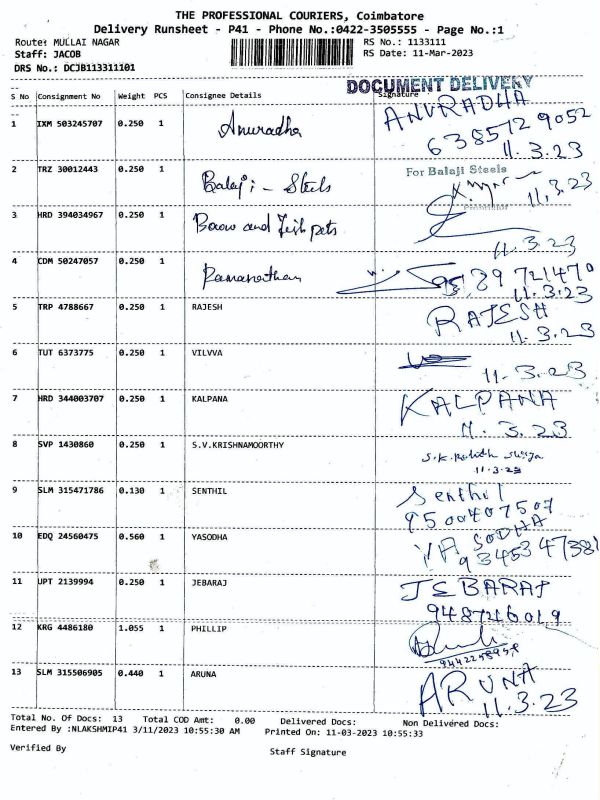 THE PROFESSIONAL COURIERS, Coimbatore
Delivery Runsheet - P41 - Phone No.:0422-3505555 - Page No.:1
Route: MULLAI NAGAR RS No.: 1133111
Staff: JACOB RS Date: 11-Mar-2023
DRS No.: DCJB113311101
DOCUMENT DELIVERY
S No Consignment No Weight PCS Consignee Details Signature
1 IXM 503245707 0.250 1 Anuradha ANURADHA
6385729052
11.3.23
2 TRZ 30012443 0.250 1 Balaji - Steels For Balaji Steels
11.3.23
3 HRD 394034967 0.250 1 and Fish pets
11.3.23
4 CDM 50247057 0.250 1 Ramanathan 9589721470
11.3.23
5 TRP 4788667 0.250 1 RAJESH RAJESH
11.3.23
6 TUT 6373775 0.250 1 VILVVA
11.3.23
7 HRD 344003707 0.250 1 KALPANA KALPANA
11.3.23
8 SVP 1430860 0.250 1 S.V.KRISHNAMOORTHY S.K.
11.3.23
9 SLM 315471786 0.130 1 SENTHIL Senthil
9500407507
10 EDQ 24560475 0.560 1 YASODHA YASODHA
9345347381
11 UPT 2139994 0.250 1 JEBARAJ JEBARAJ
9487246019
12 KRG 4486180 1.055 1 PHILLIP
9442258958
13 SLM 315506905 0.440 1 ARUNA ARUNA
11.3.23
Total No. Of Docs: 13 Total COD Amt: 0.00 Delivered Docs: Non Delivered Docs:
Entered By :NLAKSHMIP41 3/11/2023 10:55:30 AM Printed On: 11-03-2023 10:55:33
Verified By Staff Signature